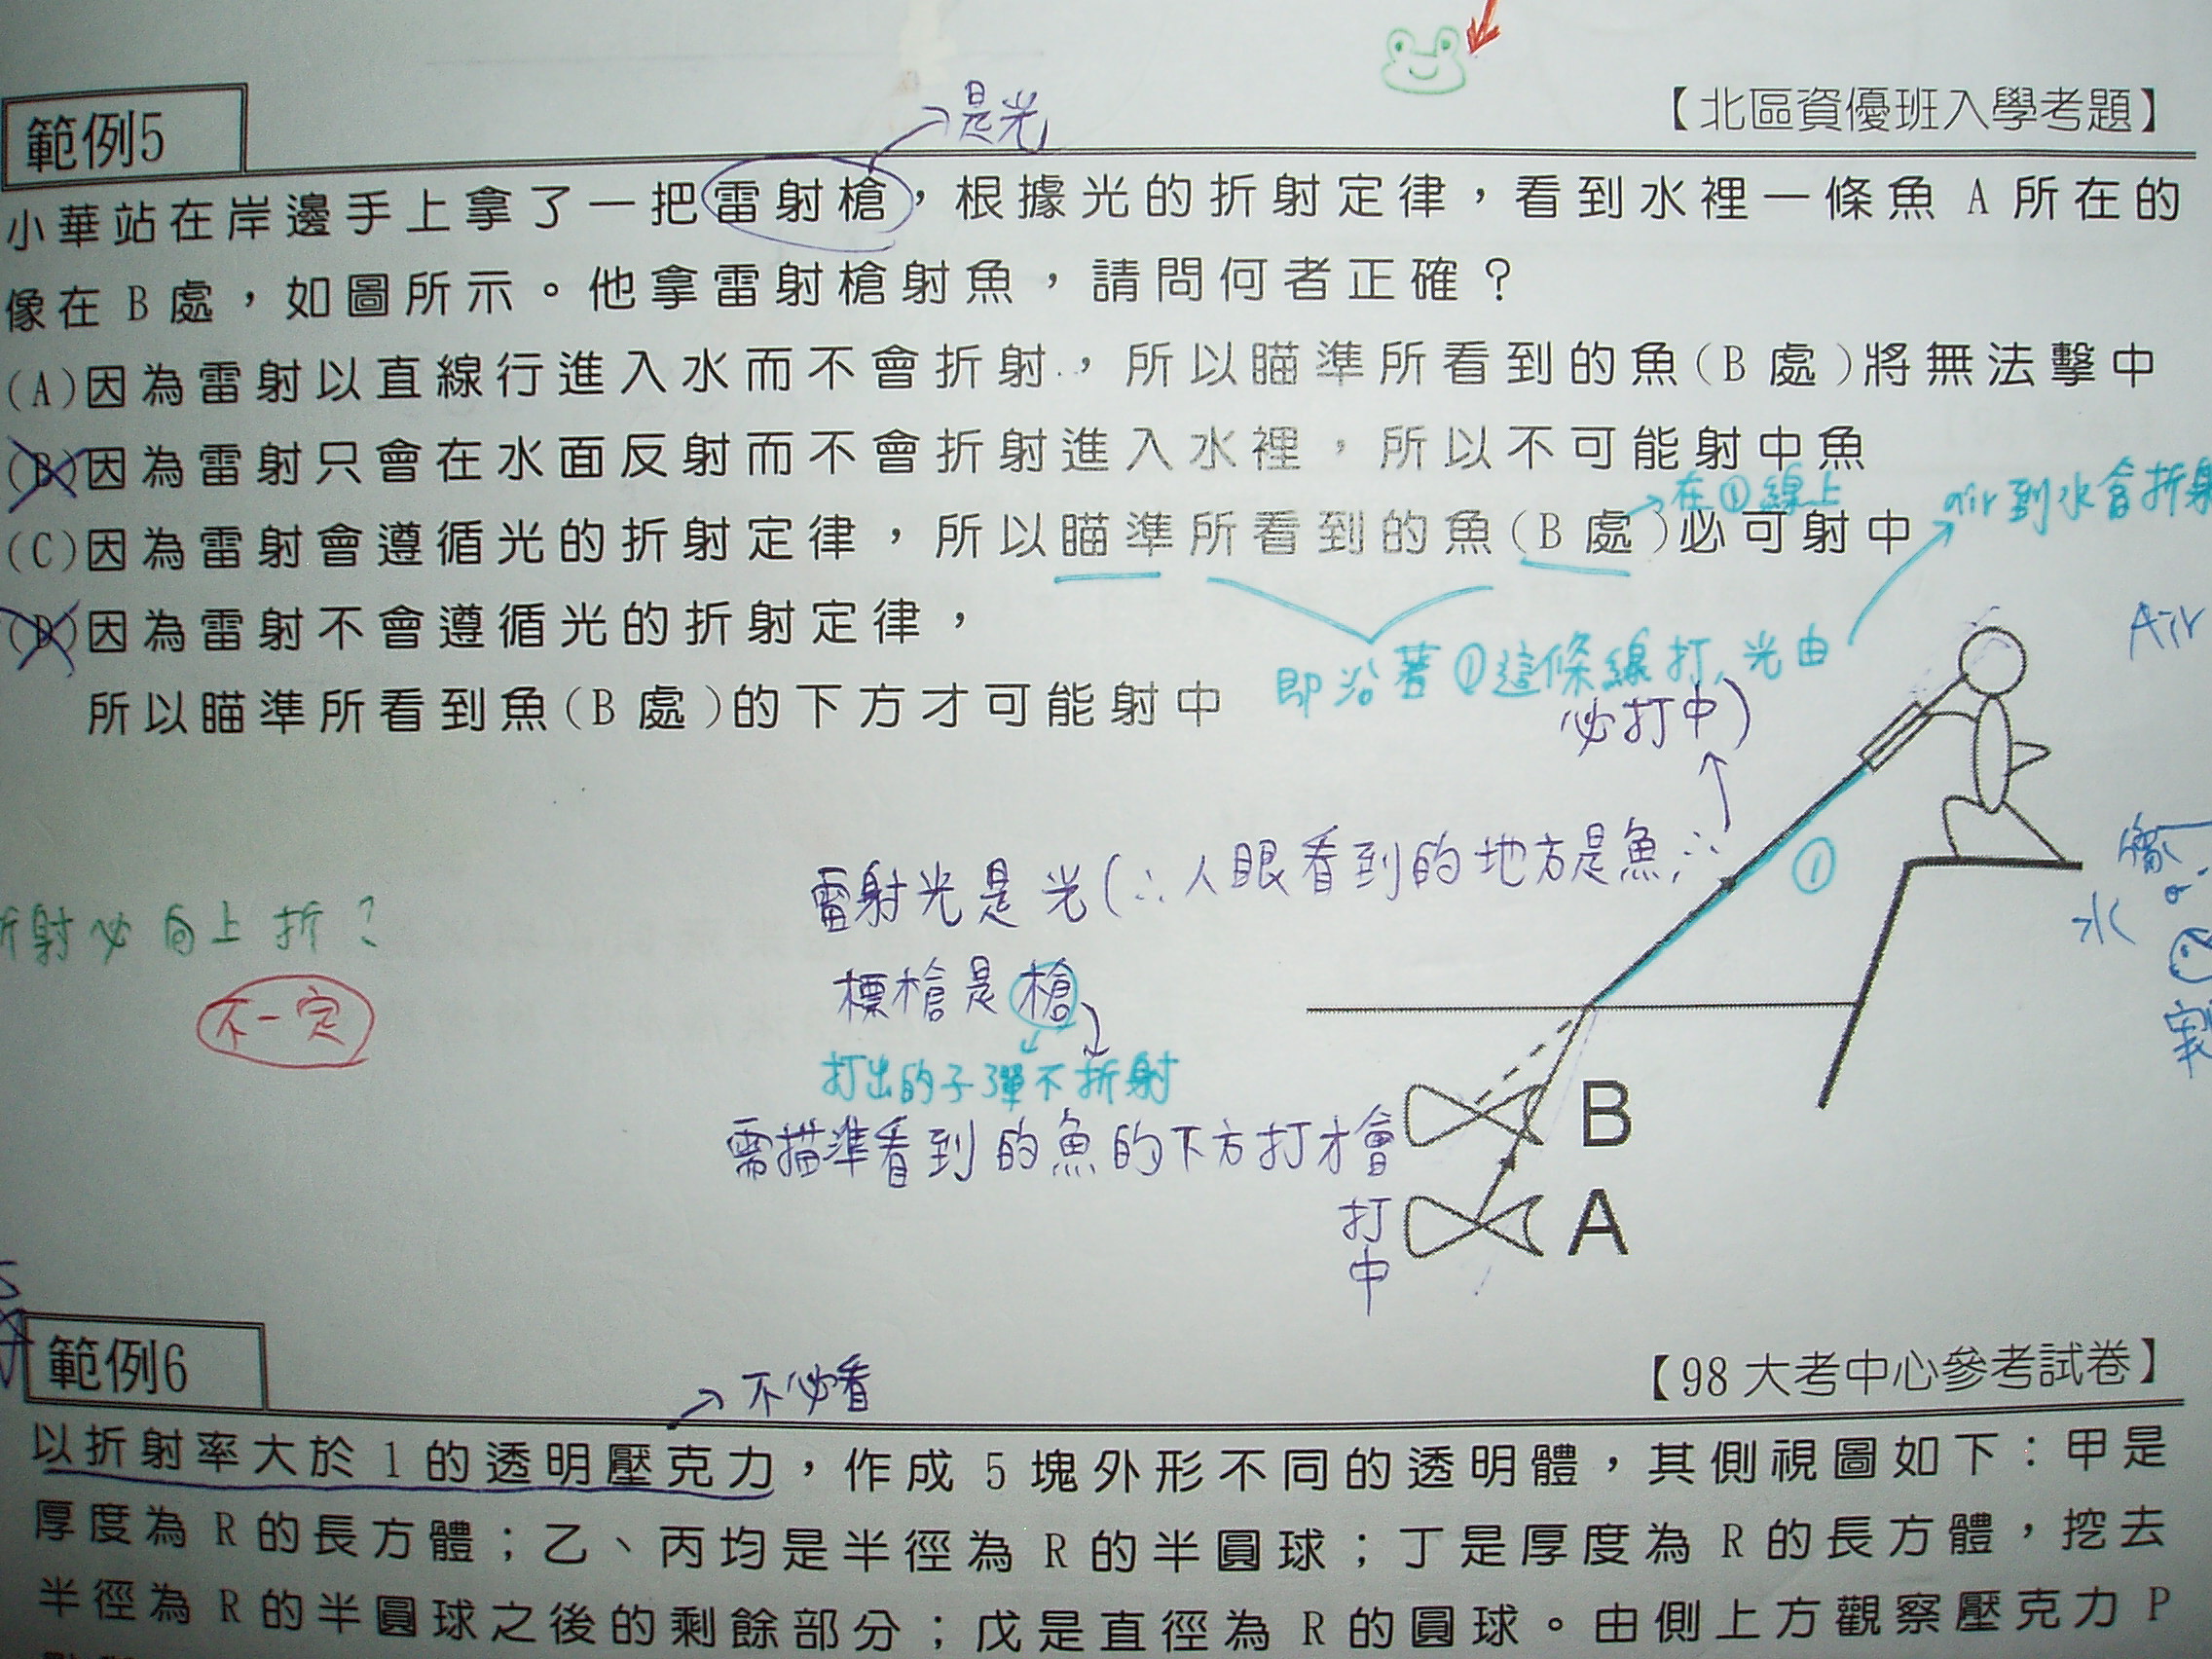 範例5
【北區資優班入學考題】
是光
小華站在岸邊手上拿了一把雷射槍，根據光的折射定律，看到水裡一條魚 A 所在的
像在 B 處，如圖所示。他拿雷射槍射魚，請問何者正確？
(A)因為雷射以直線行進入水而不會折射，所以瞄準所看到的魚(B 處)將無法擊中
(B)因為雷射只會在水面反射而不會折射進入水裡，所以不可能射中魚
在①線上
air 到水會折射
(C)因為雷射會遵循光的折射定律，所以瞄準所看到的魚(B 處)必可射中
(D)因為雷射不會遵循光的折射定律，
所以瞄準所看到魚(B 處)的下方才可能射中
即沿著①這條線打，光由
必打中)
Air
①
水
雷射光是光(∵人眼看到的地方是魚，∴
折射必向上折？
不一定
標槍是槍
打出的子彈不折射
需描準看到的魚的下方打才會
打
中
B
A
範例6
【98 大考中心參考試卷】
不必看
以折射率大於 1 的透明壓克力，作成 5 塊外形不同的透明體，其側視圖如下：甲是
厚度為 R 的長方體；乙、丙均是半徑為 R 的半圓球；丁是厚度為 R 的長方體，挖去
半徑為 R 的半圓球之後的剩餘部分；戊是直徑為 R 的圓球。由側上方觀察壓克力 P